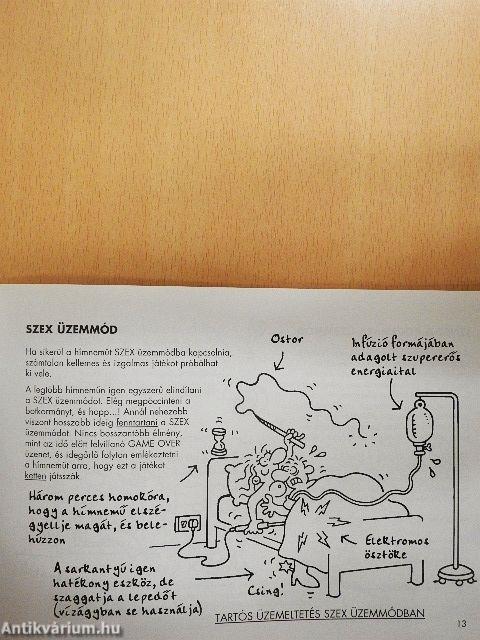 SZEX ÜZEMMÓD
Ha sikerül a hímneműt SZEX üzemmódba kapcsolnia,
számtalan kellemes és izgalmas játékot próbálhat
ki vele.
A legtöbb hímneműn igen egyszerű elindítani
a SZEX üzemmódot. Elég megpöccinteni a
botkormányt, és hopp...! Annál nehezebb
viszont hosszabb ideig fenntartani a SZEX
üzemmódot. Nincs bosszantóbb élmény,
mint az idő előtt felvillanó GAME OVER
üzenet, és idegőrlő folyton emlékeztetni
a hímneműt arra, hogy ezt a játékot
ketten játsszák.
Ostor
Infúzió formájában
adagolt szupererős
energiaital
Három perces homokóra,
hogy a hímnemű elszé-
gyellje magát, és bele-
húzzon
Elektromos
ösztöke
A sarkantyú igen
hatékony eszköz, de
szaggatja a lepedőt
(vízágyban se használja)
Csing!
TARTÓS ÜZEMELTETÉS SZEX ÜZEMMÓDBAN
13
Antikvárium.hu